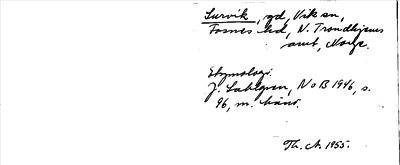 Survik, gd, Vik sn,
Fosnes hd, N. Trondhjems
amt, Norge.
Etymologi.
J. Sahlgren, NoB 1946, s.
96, m. hänv.
Th. A. 1955.